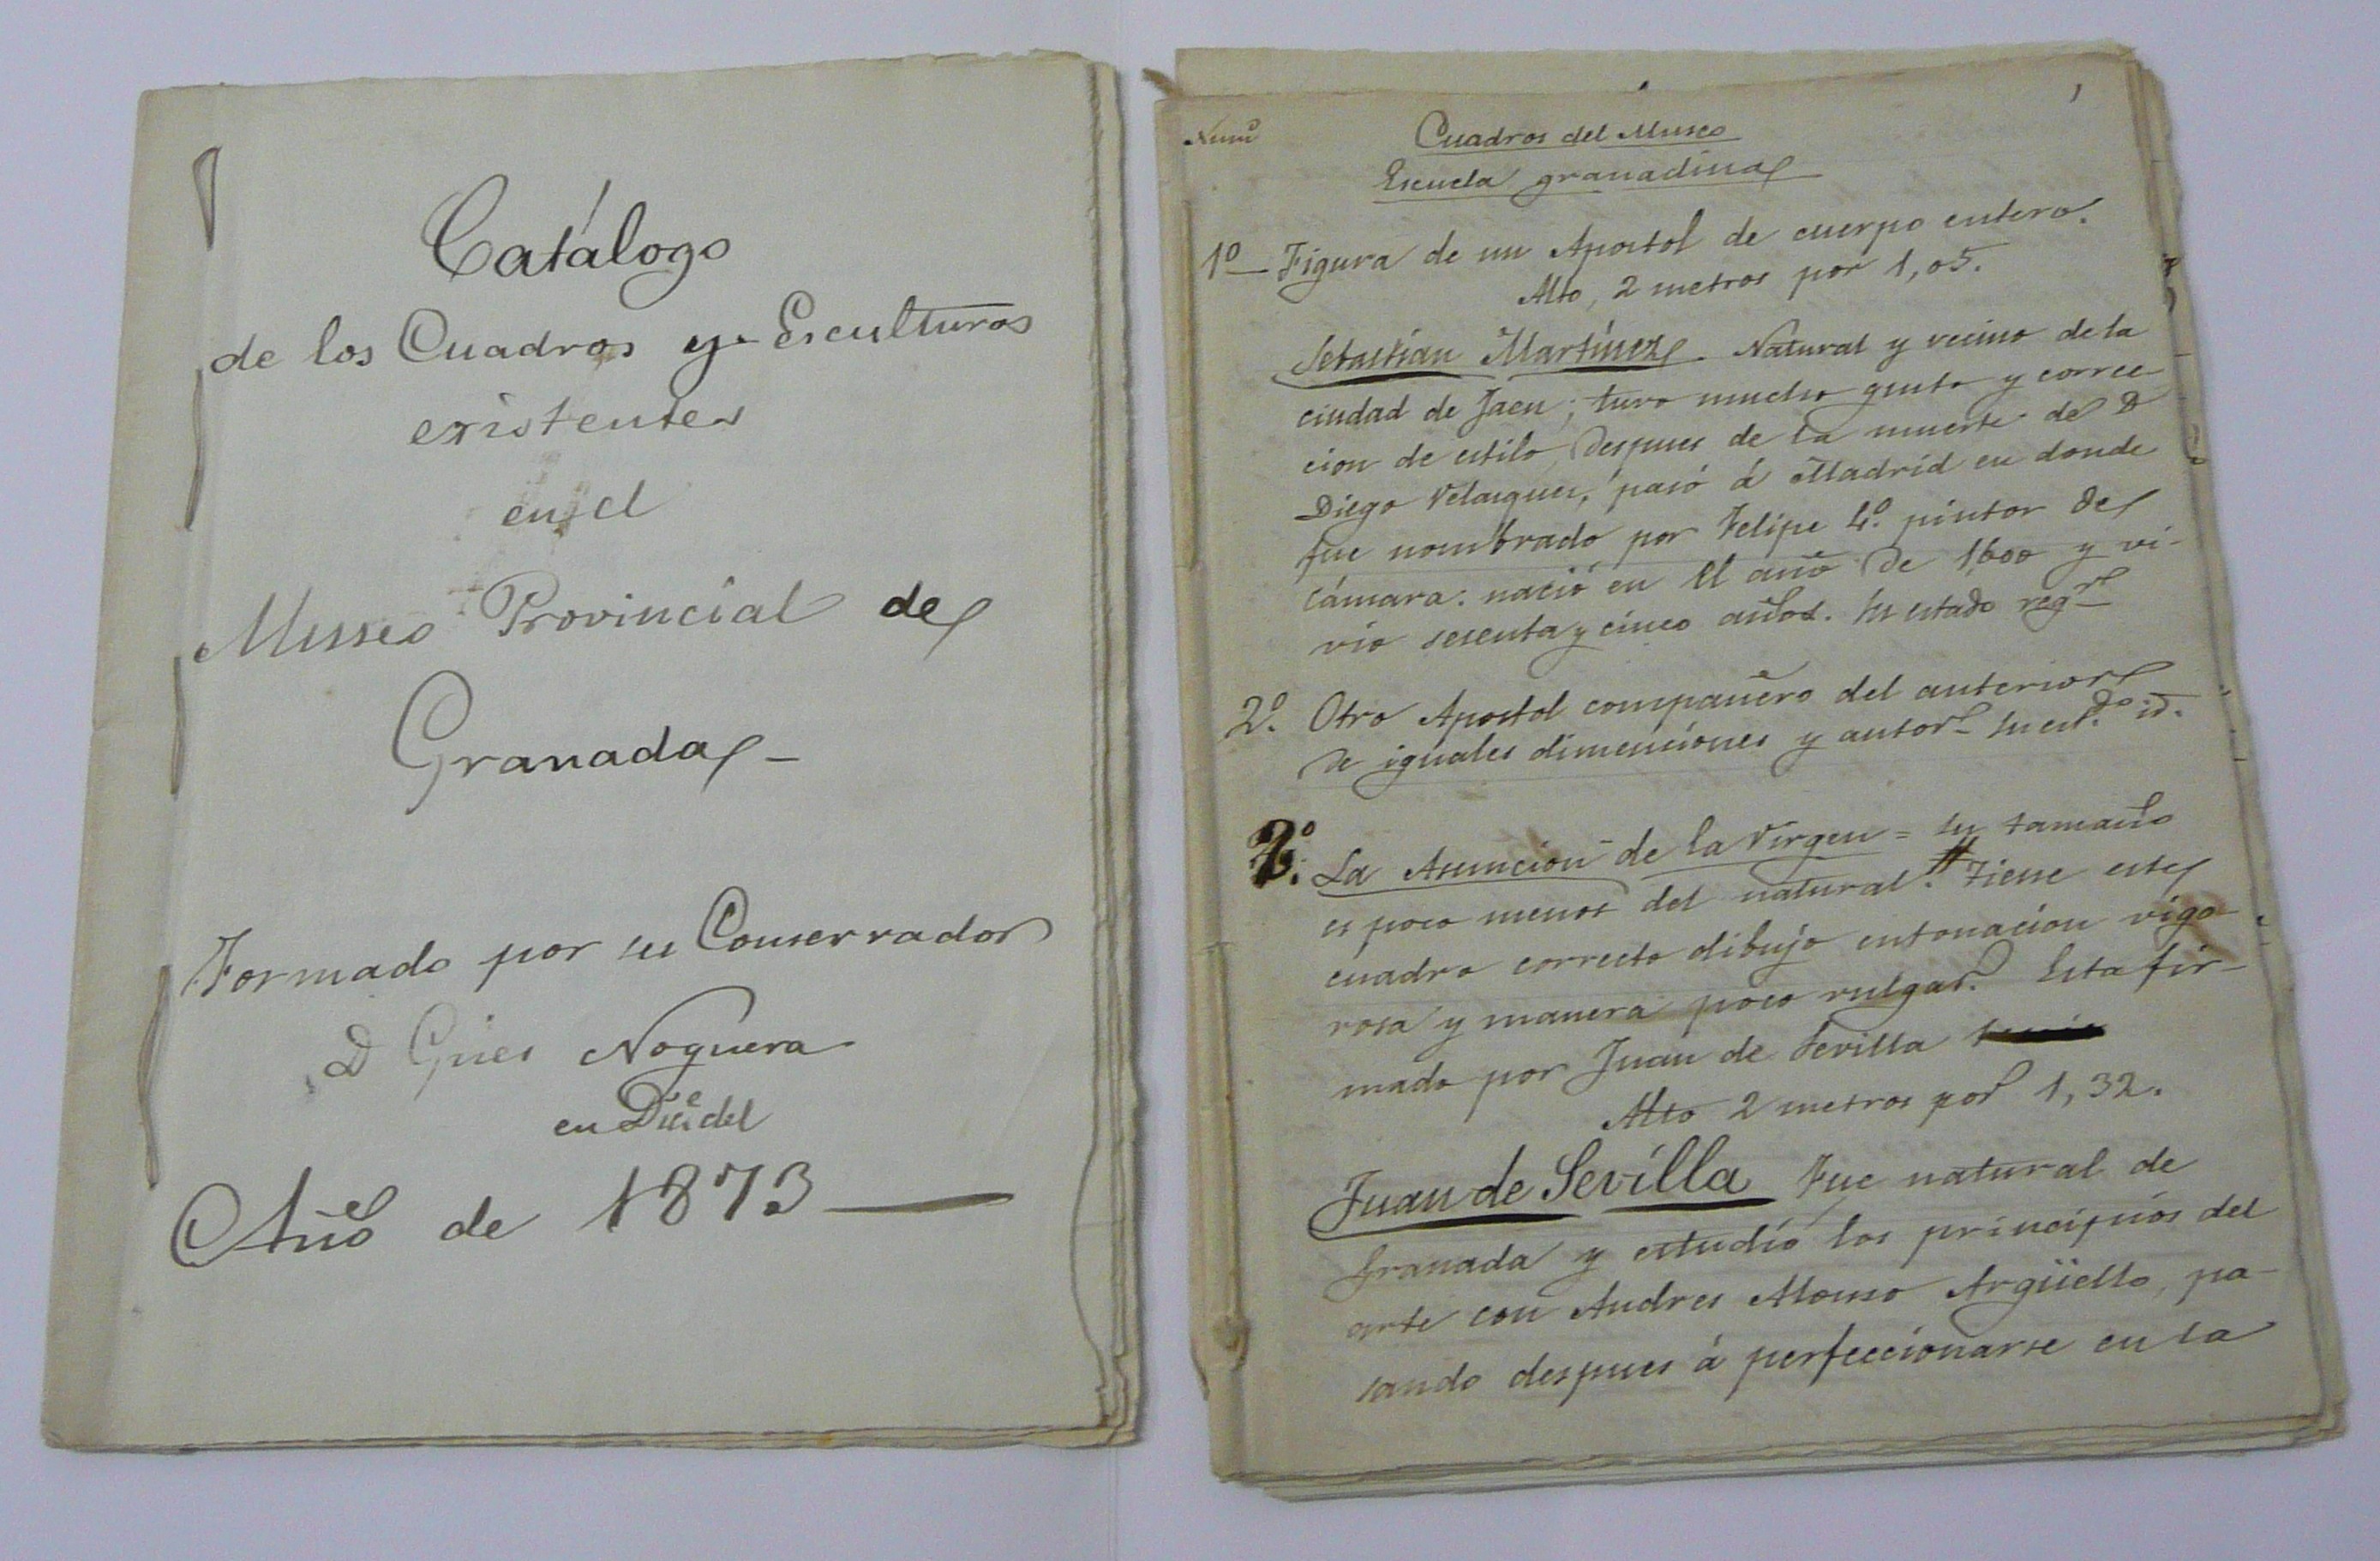 Catálogo
de los Cuadros y Esculturas
existentes
en el
Museo Provincial de
Granada
Formado por su Conservador
D Gines Noguera
en Dic.e del
Año de 1873
1
Numº
Cuadros del Museo
Escuela granadina
1º Figura de un Apostol de cuerpo entero.
Alto, 2 metros por 1,05.
Sebastián Martínez. Natural y vecino de la
ciudad de Jaen; tuvo mucho gusto y correc-
cion de estilo, despues de la muerte de D
Diego Velasquez, pasó á Madrid en donde
fue nombrado por Felipe 4º. pintor de
cámara: nació en el año de 1600 y vi-
vio sesenta y cinco años. Su estado reg.r
2º. Otro Apostol compañero del anterior
de iguales dimenciones y autor- Su est.do id.
3º. La Asuncion de la Virgen = su tamaño
es poco menos del natural. # Tiene este
cuadro correcto dibujo entonacion vigo-
rosa y manera poco vulgar. Esta fir-
mado por Juan de Sevilla
Alto 2 metros por 1,32.
Juan de Sevilla Fue natural de
Granada y estudió los principios del
arte con Andres Alonso Argüello, pa-
sando despues á perfeccionarse en la